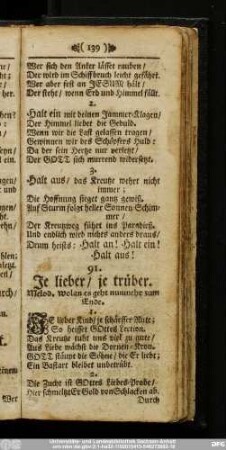 ( 139 )
Wer sich den Anker lässet rauben/
Der wird im Schiffbruch leicht gefährt.
Wer aber fest an JESUM hält/
Der steht/ wenn Erd und Himmel fällt.
2.
Halt ein mit deinen Jammer-Klagen/
Der Himmel liebet die Geduld.
Wenn wir die Last gelassen tragen/
Gewinnen wir des Schöpfers Huld:
Da der sein Hertze nur verletzt/
Der GOTT sich murrend widersetzt.
3.
Halt aus/ das Kreutze wehrt nicht
immer;
Die Hoffnung sieget gantz gewiß.
Auf Sturm folgt heller Sonnen-Schim-
mer/
Der Kreutzweg führt ins Paradieß.
Und endlich wird nichts anders draus/
Drum heists: Halt an! Halt ein!
Halt aus!
91.
Je lieber/ je trüber.
Melod. Wolan es geht nunmehr zum
Ende.
1.
JE lieber Kind/ je schärffer Rute;
So heisset GOttes Lection.
Das Kreutze ruht uns viel zu gute/
Aus Liebe wächst die Dornen-Kron.
GOTT stäupt die Söhne/ die Er liebt;
Ein Bastart bleibet unbetrübt.
2.
Die Zucht ist GOttes Liebes-Probe/
Hier schmeltzt Er Gold vom Schlacken ab.
Durch